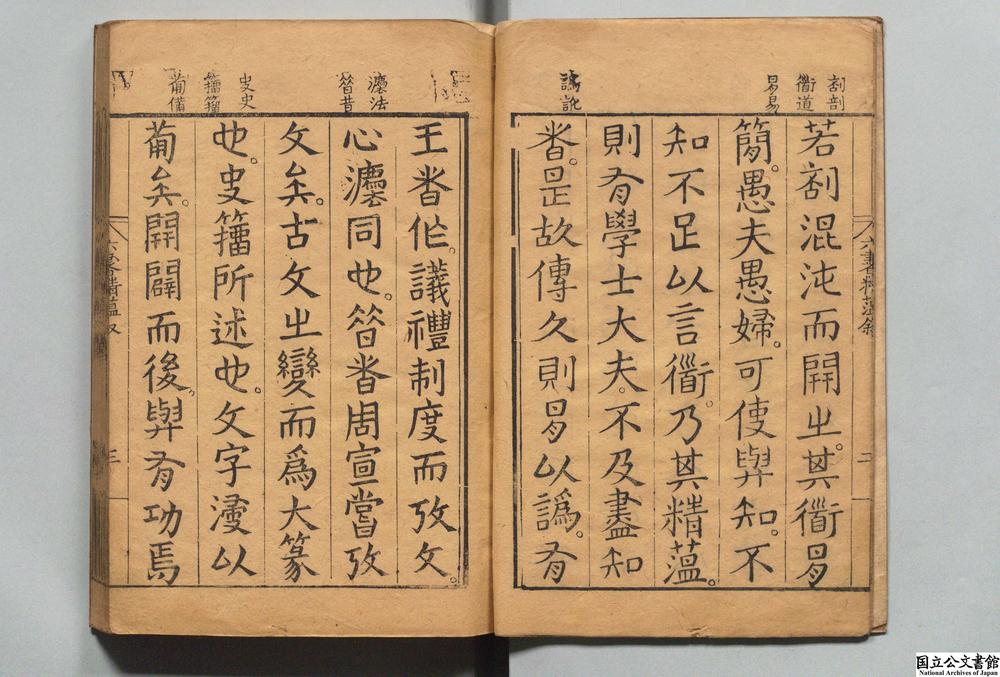 㓣剖
衜道
易易
譌訛
若㓣混沌而開㞢。其衜易
簡。愚夫愚婦。可使與知。不
知不足以言衜。乃其精薀。
則有學士大夫。不及盡知
者。是故傳久則易以譌。有
六書精薀敘 二
灋法
㫺昔
史史
籒籀
葡備
王者作。議禮制度而攷文。
心灋同也。㫺者周宣當攷
文矣。古文㞢變而爲大篆
也。史籒所述也。文字濅以
葡矣。開闢而後。與有功焉
六書精薀叙 三
国立公文書館
National Archives of Japan